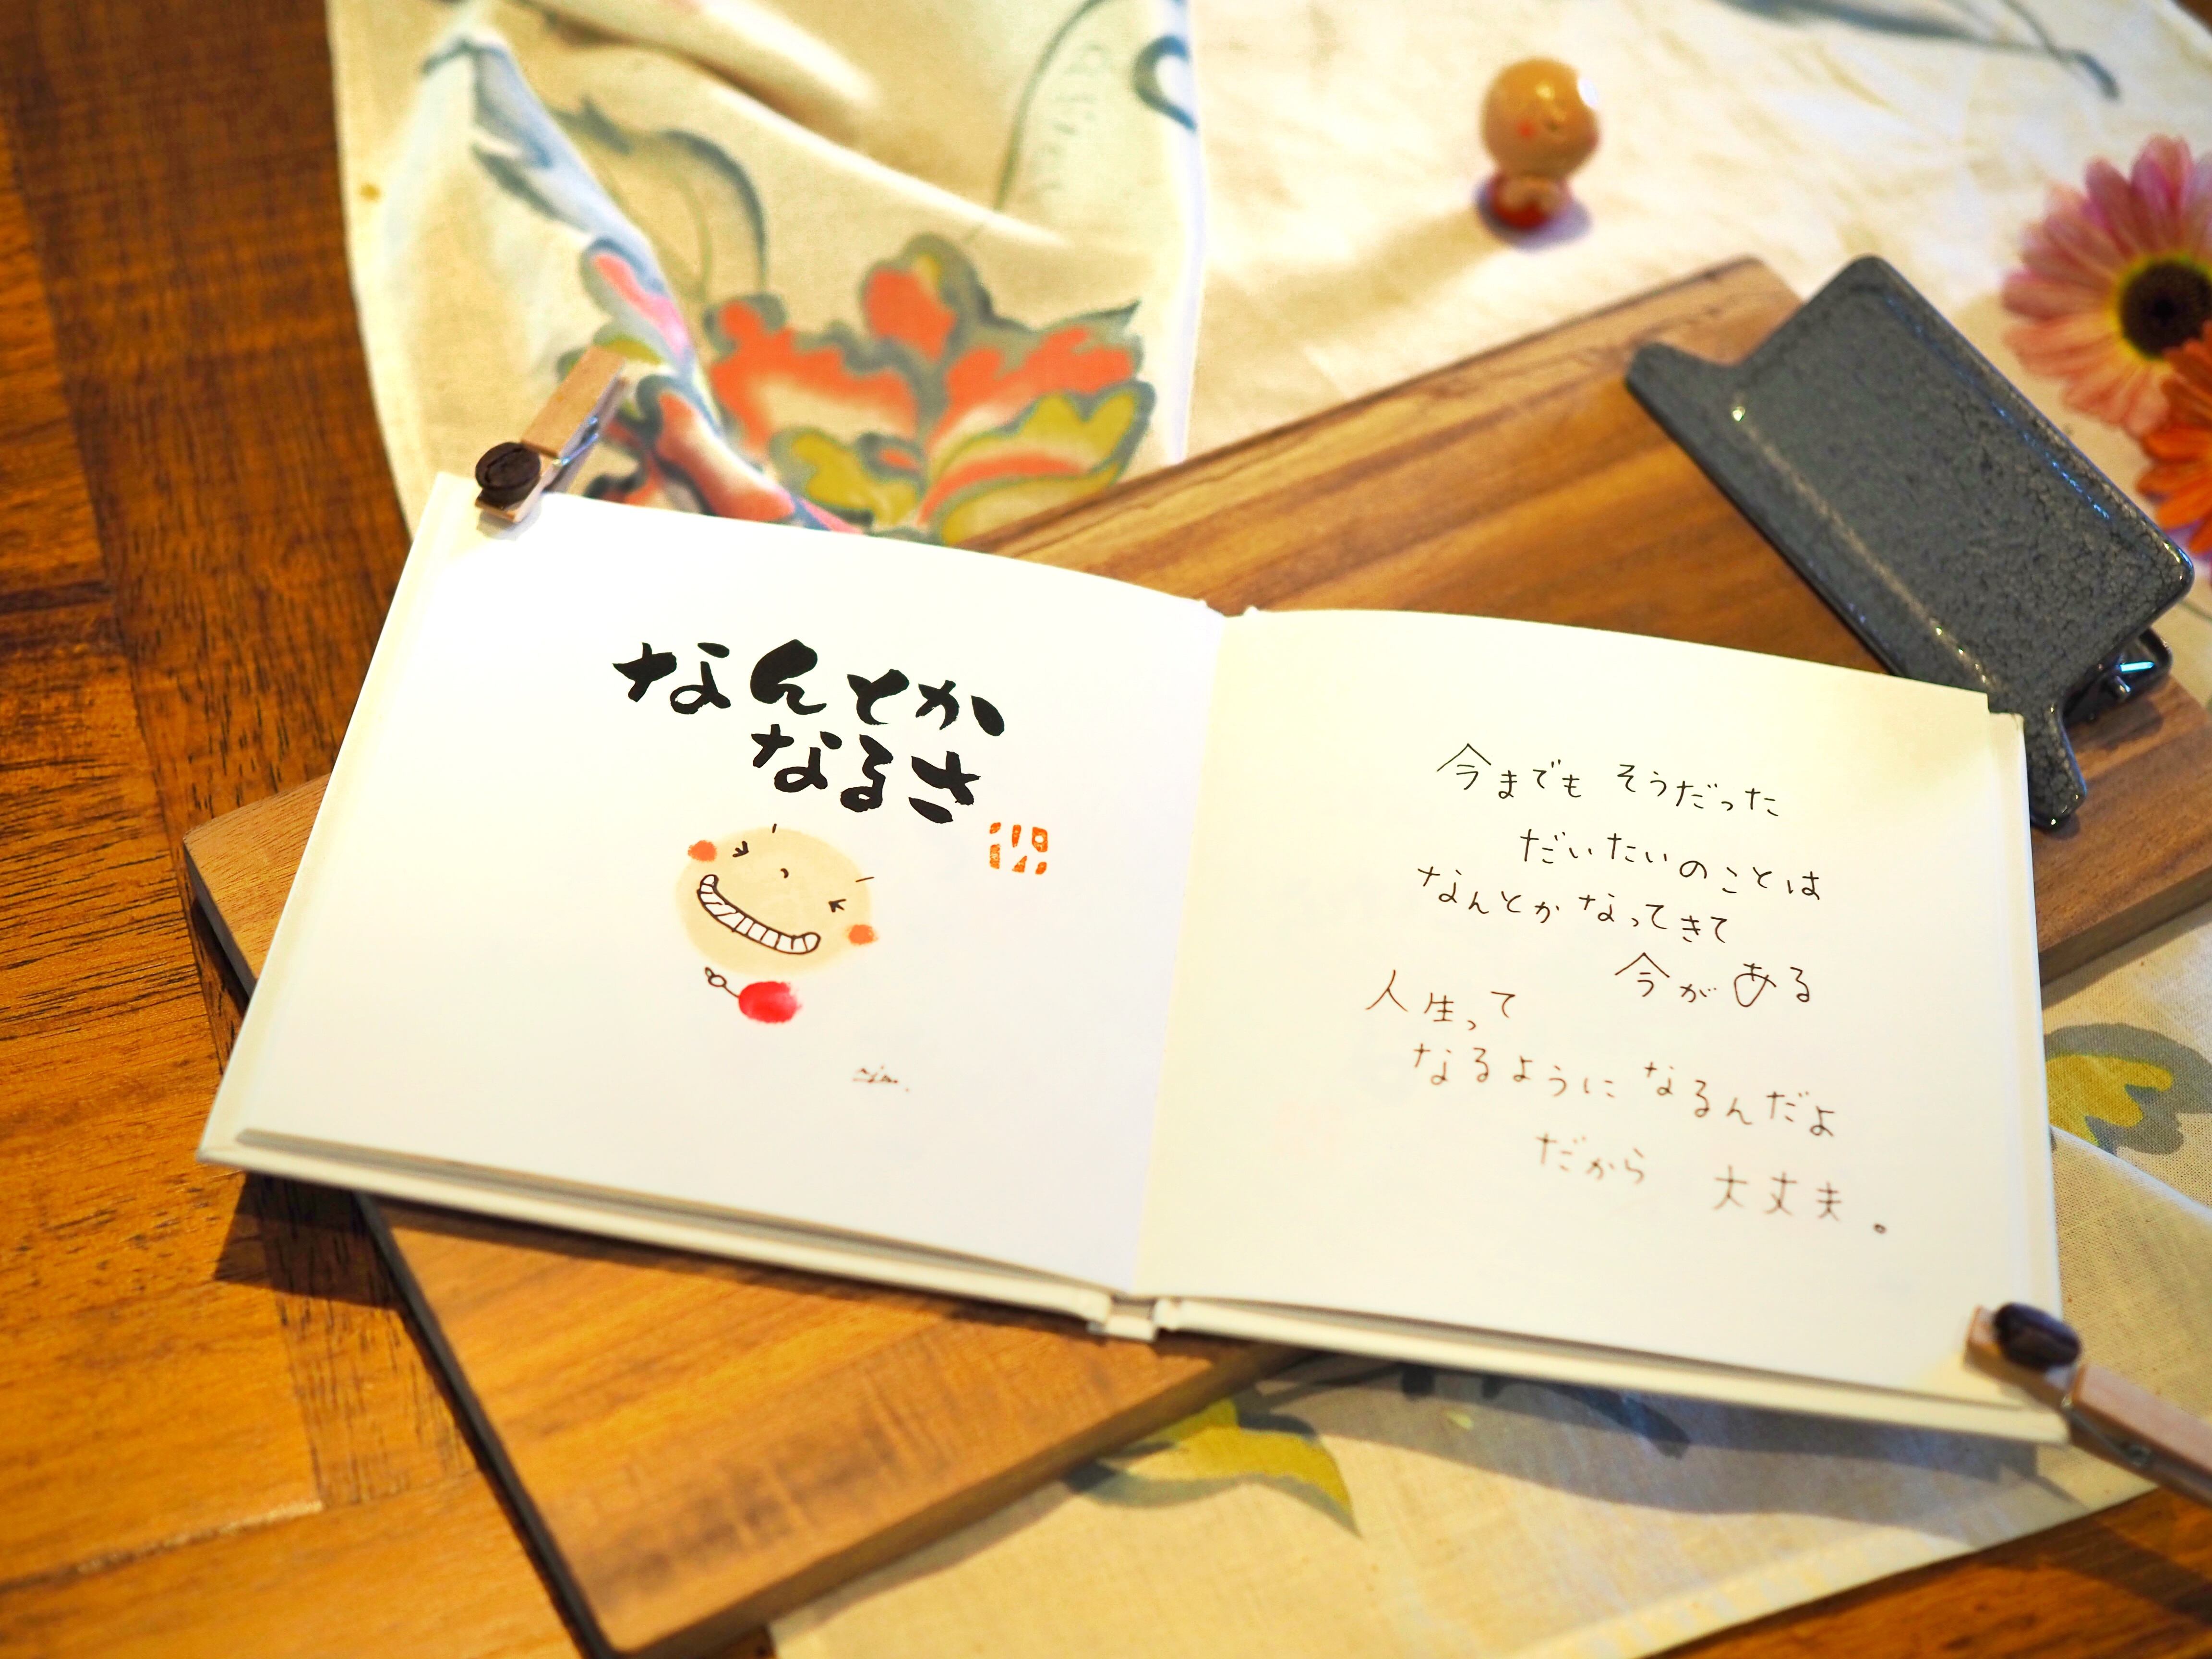 なんとか
なるさ
今までも そうだった
だいたいのことは
なんとか なってきて
今が ある
人生って
なるように なるんだよ
だから 大丈夫。